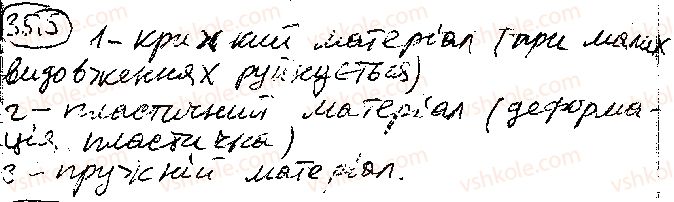 35.5 1 - крихкий матеріал (при малих
видовженнях руйнується)
2 - пластичний матеріал (деформа-
ція пластична)
3 - пружній матеріал.